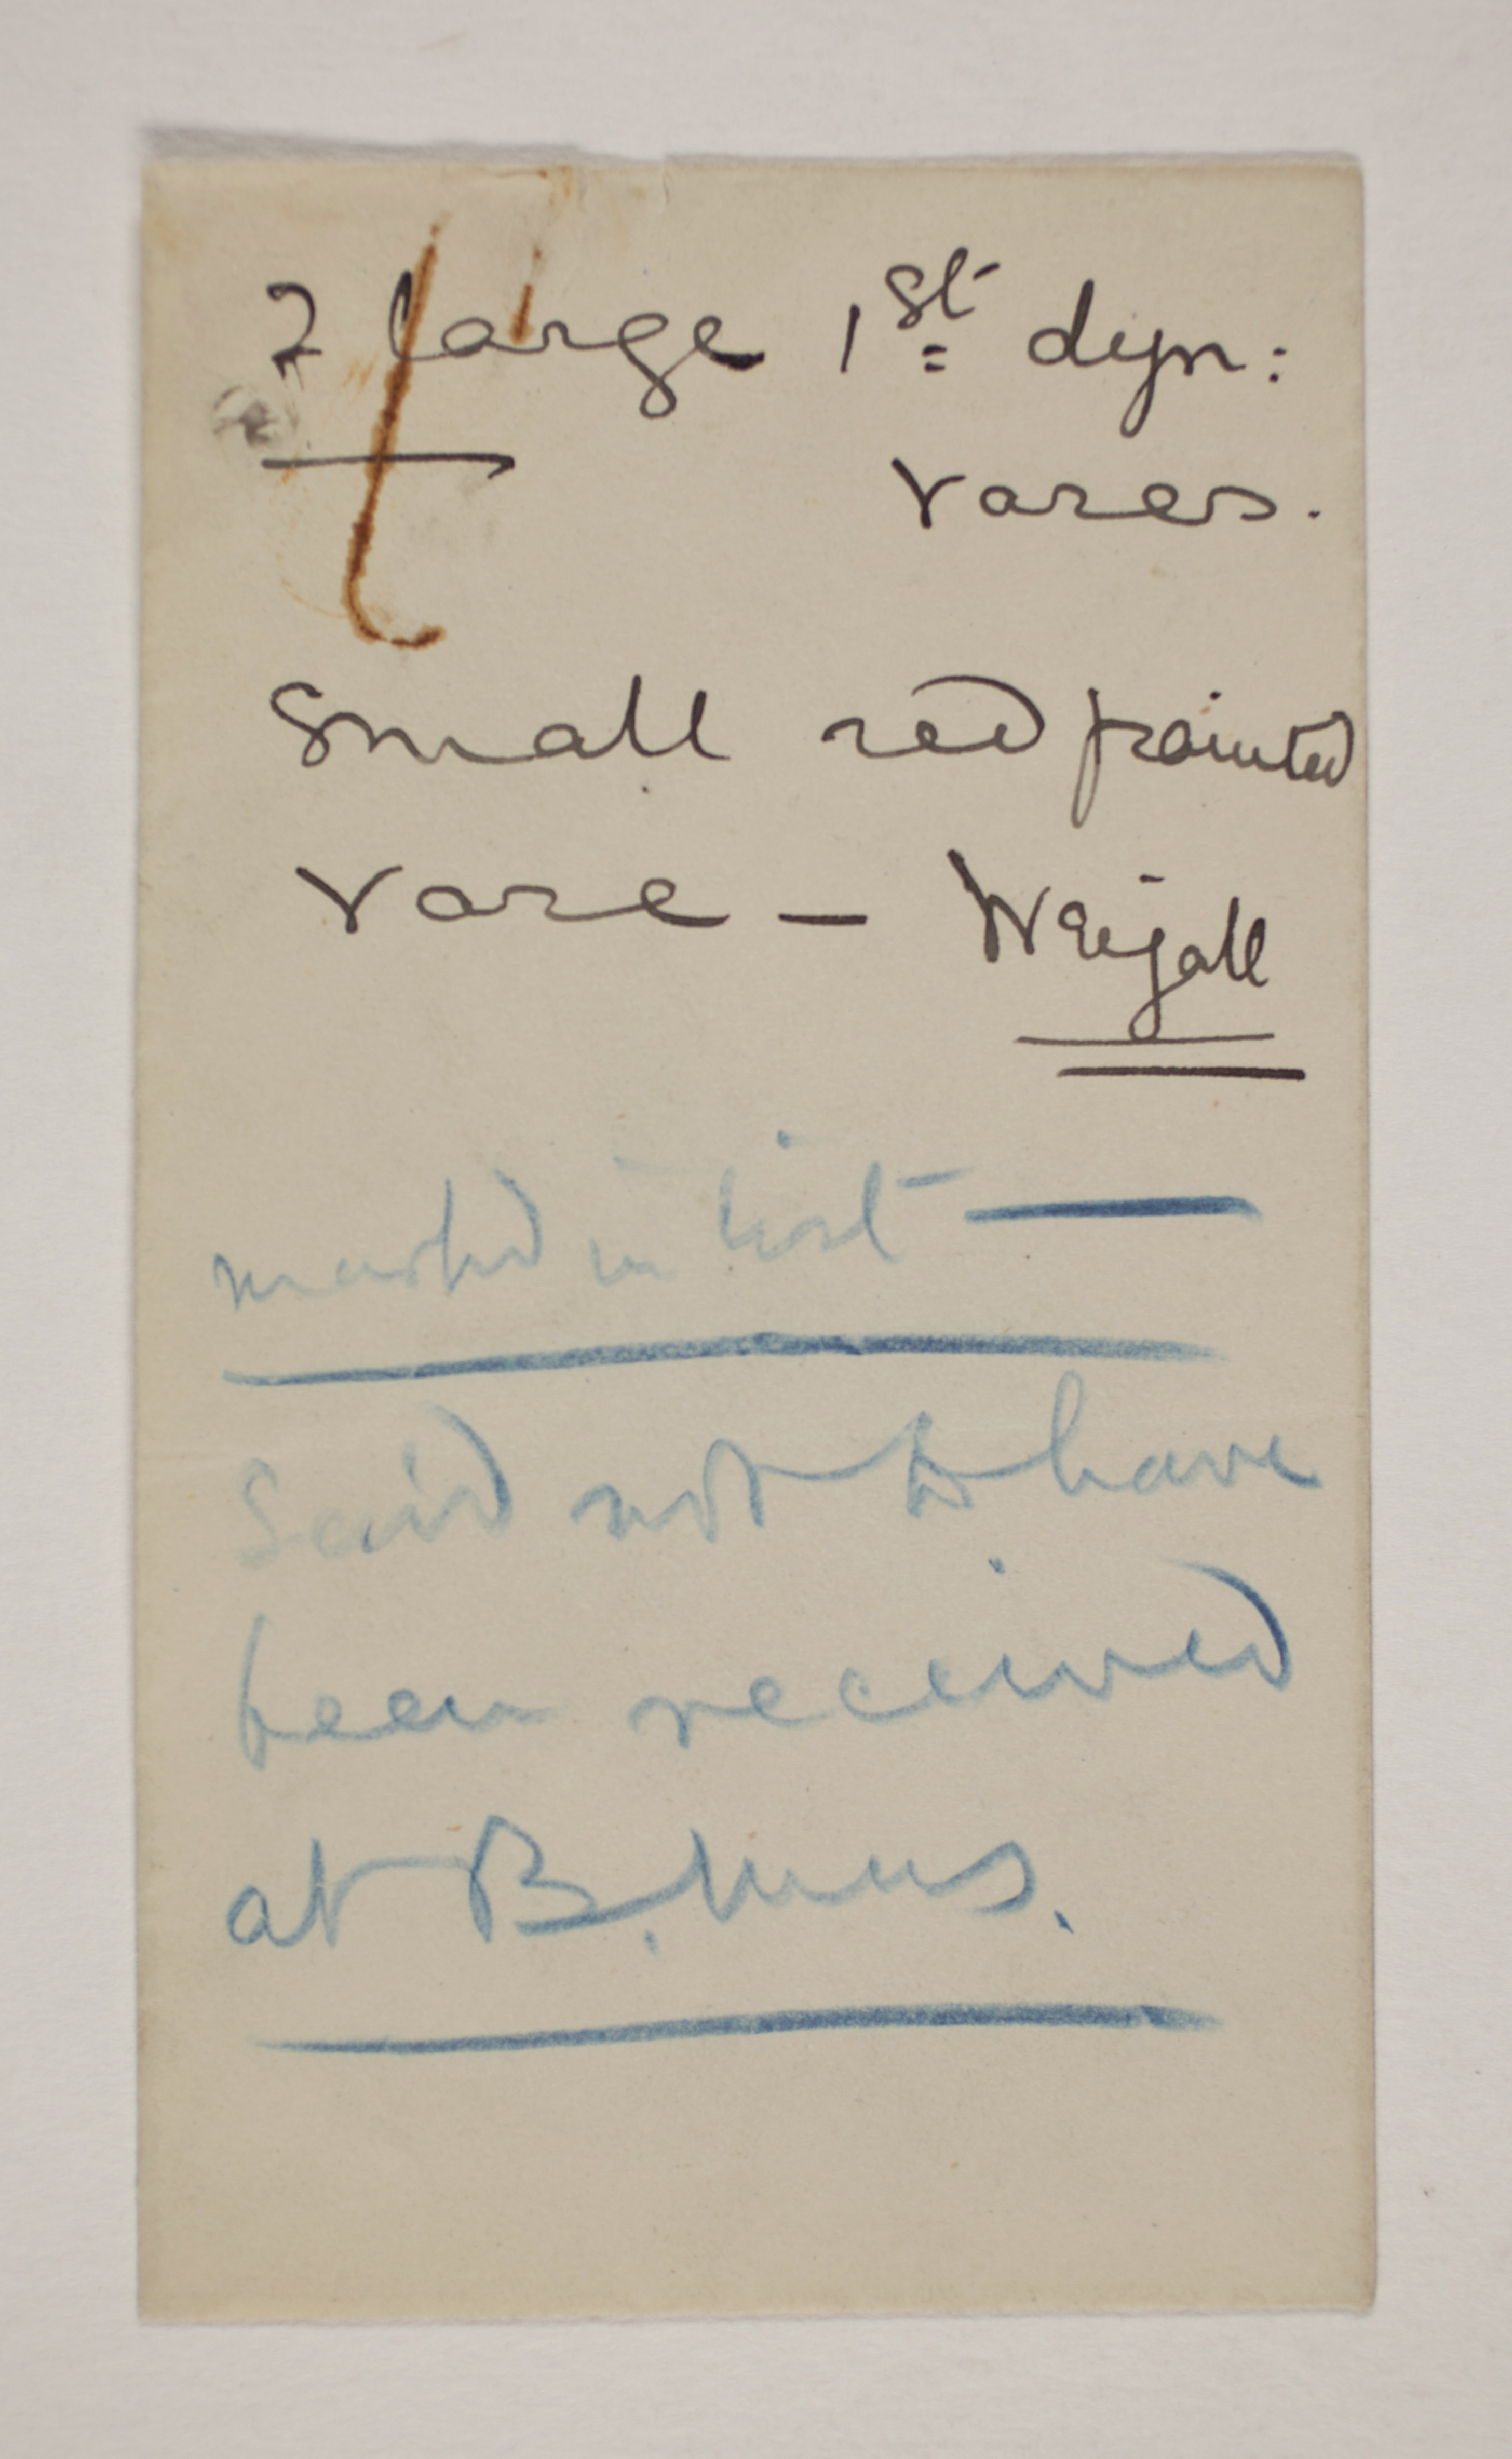 2 large 1st dyn:
vases.
Small red painted
vase – Weigall
marked in list –
Said not to have
been received
at B. Mus.